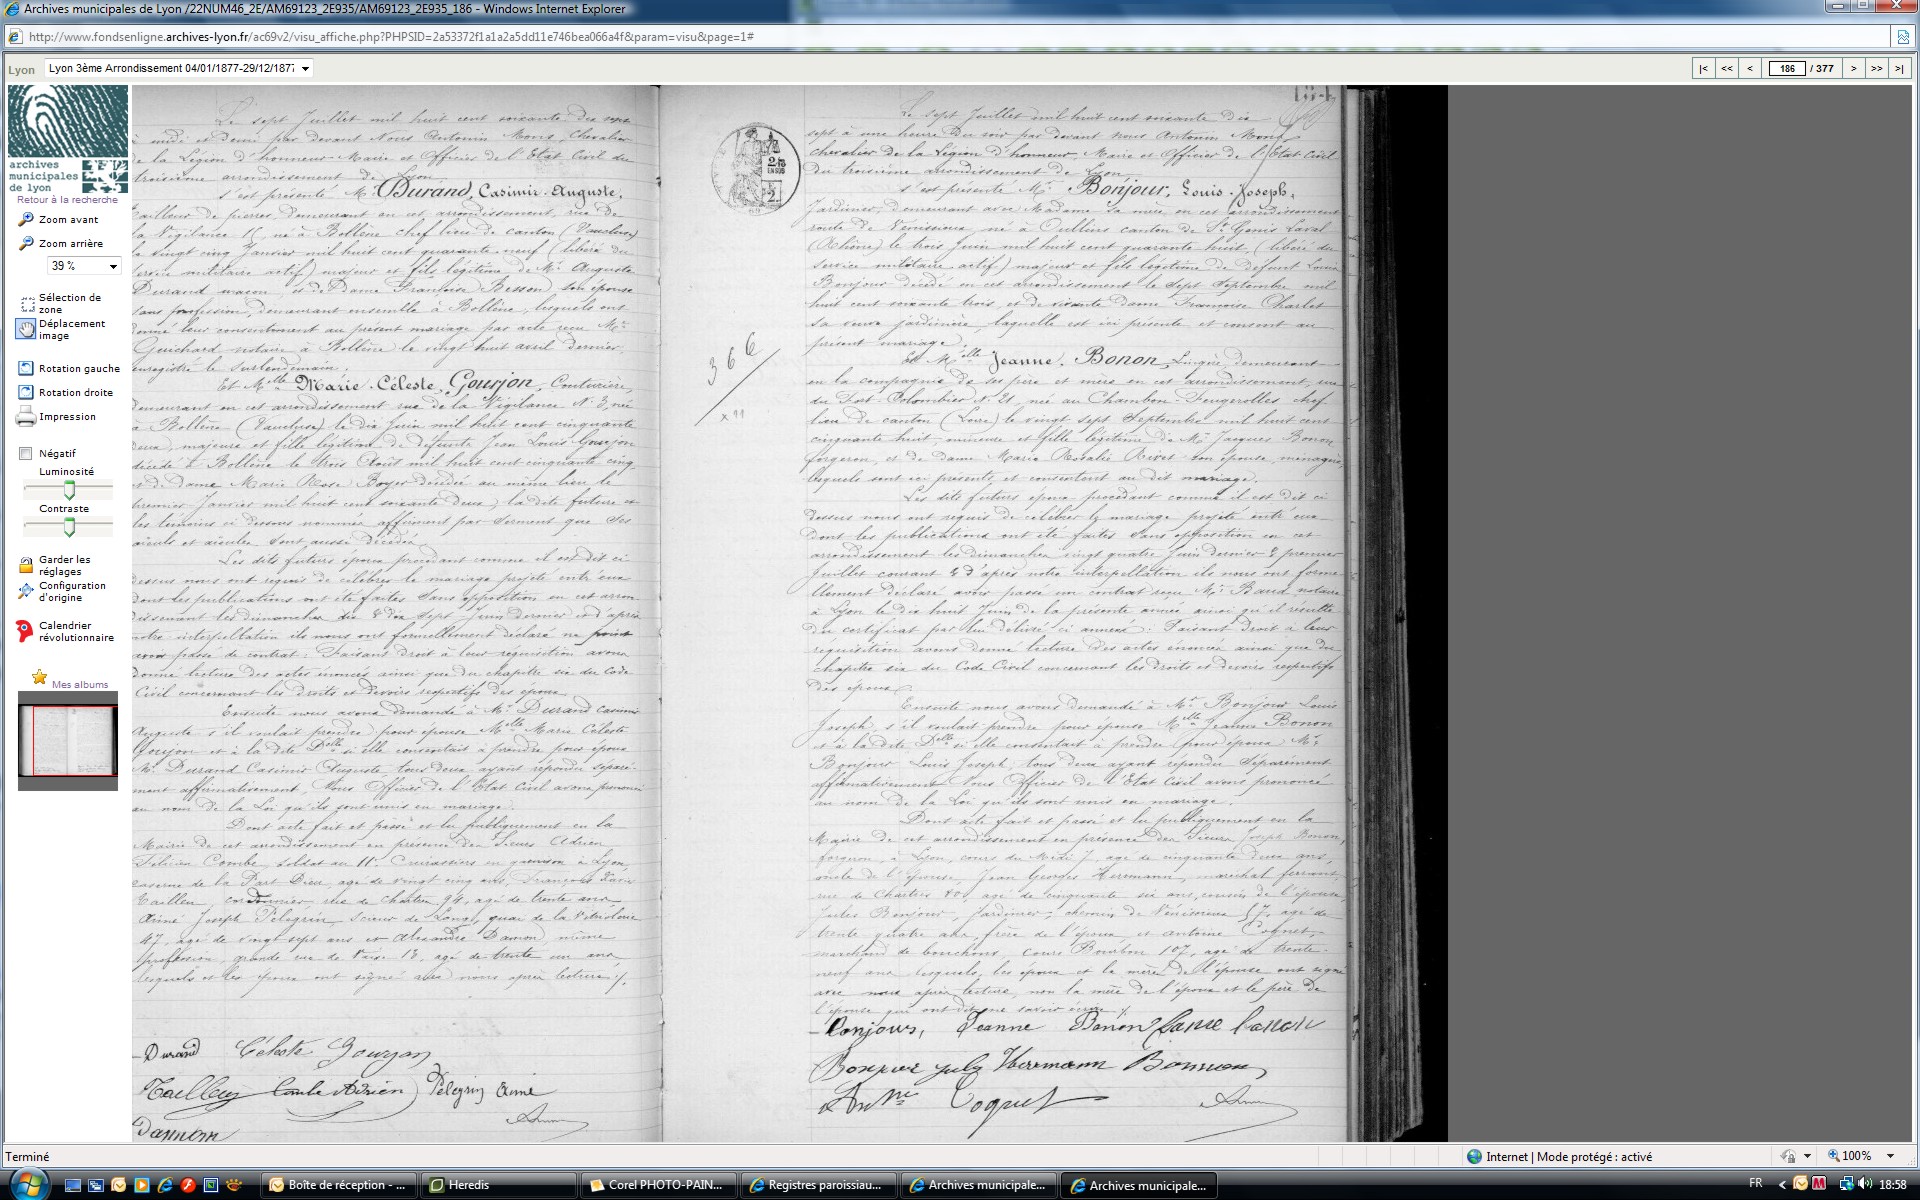 Archives municipales de Lyon /22NUM46_2E/AM69123_2E935/AM69123_2E935_186 - Windows Internet Explorer
http://www.fondsenligne.archives-lyon.fr/ac69v2/visu_affiche.php?PHPSID=2a53372f1a1a2a5dd11e746bea066a4f&param=visu&page=1#
Lyon
Lyon 3ème Arrondissement 04/01/1877-29/12/1877
|< << < 186 / 377 > >> >|
archives
municipales
de lyon
Retour à la recherche
Zoom avant
Zoom arrière
39 %
Sélection de
zone
Déplacement
image
Rotation gauche
Rotation droite
Impression
Négatif
Luminosité
Contraste
Garder les
réglages
Configuration
d'origine
Calendrier
révolutionnaire
Mes albums
Le sept Juillet mil huit cent soixante dix sept
à midi et demi par devant Nous Antonin Mons, Chevalier
de la Légion d'honneur Maire et Officier de l'Etat Civil du
troisième arrondissement de Lyon
s'est présenté Mr Durand, Casimir-Auguste,
tailleur de pierres demeurant en cet arrondissement, rue de
la Vigilance né à Bollène chef lieu de canton (Vaucluse)
le vingt cinq Janvier mil huit cent quarante neuf (libéré du
service militaire actif) majeur et fils légitime de Mr Auguste
Durand maçon, et de Dame Françoise Besson son épouse
sans profession, demeurant ensemble à Bollène, lesquels ont
donné leur consentement au présent mariage par acte reçu Me
Guichard notaire à Bollène le vingt huit avril dernier,
enregistré le surlendemain.
Et Melle Marie-Céleste Gourjon, Couturière,
demeurant en cet arrondissement rue de la Vigilance N. 3, née
à Bollène (Vaucluse) le dix Juin mil huit cent cinquante
deux, majeure et fille légitime de défunts Jean Louis Gourjon
décédé à Bollène le trois Août mil huit cent cinquante cinq
et de Dame Marie Rose Boyer décédée au même lieu le
premier Janvier mil huit cent soixante deux; la dite future et
les témoins ci dessous nommés affirment par serment que ses
aïeuls et aïeules sont aussi décédés.
Les dits futurs époux procédant comme il est dit ci
dessus nous ont requis de célébrer le mariage projeté entr'eux
dont les publications ont été faites sans opposition en cet arron-
dissement les dimanches dix & dix sept Juin dernier et d'après
notre interpellation ils nous ont formellement déclaré ne point
avoir passé de contrat: Faisant droit à leur réquisition avons
donné lecture des actes énoncés ainsi que du chapitre six du Code
Civil concernant les droits et devoirs respectifs des époux.
Ensuite nous avons demandé à Mr Durand Casimir
Auguste s'il voulait prendre pour épouse Melle Marie Céleste
Gourjon et à la dite Delle si elle consentait à prendre pour époux
Mr Durand Casimir Auguste tous deux ayant répondu séparé-
ment affirmativement, Nous Officier de l'Etat Civil avons prononcé
au nom de la Loi qu'ils sont unis en mariage.
Dont acte fait et passé et lu publiquement en la
Mairie de cet arrondissement en présence des Sieurs Adrien
Félicien Combe, soldat au 11e Cuirassiers en garnison à Lyon,
caserne de la Part Dieu, agé de vingt cinq ans, François Xavier
Tailleu, cordonnier rue de Chartres 94, agé de trente ans
Aimé Joseph Pélegrin, scieur de Long, quai de la Vitriolerie
47, agé de vingt sept ans et Alexandre Damon, même
profession, grande rue de Vaise 13, agé de trente un ans,
lesquels et les époux ont signé avec nous après lecture ./.
Durand Céleste Gourjon
Tailleu Combe Adrien Pélegrin Aimé
366
x 11
Le sept Juillet mil huit cent soixante dix
sept à une heure du soir par devant nous Antonin Mons
chevalier de la Légion d'honneur, Maire et Officier de l'Etat Civil
du troisième arrondissement de Lyon
s'est présenté Mr Bonjour, Louis-Joseph,
Jardinier, demeurant avec Madame sa mère, en cet arrondissement
route de Vénissieux, né à Oullins canton de St Genis Laval
(Rhône) le trois Juin mil huit cent quarante huit (libéré du
service militaire actif) majeur et fils légitime de défunt Louis
Bonjour décédé en cet arrondissement le sept Septembre mil
huit cent soixante trois, et de vivante dame Françoise Charlet
sa veuve jardinière, laquelle est ici présente et consent au
présent mariage.
Et Melle Jeanne Bonon, Lingère, demeurant
en la compagnie de ses père et mère en cet arrondissement, rue
du Fort Colombier N. 21, née au Chambon-Feugerolles chef
lieu de canton (Loire) le vingt sept Septembre mil huit cent
cinquante huit, mineure et fille légitime de Mr Jacques Bonon
forgeron, et de dame Marie Rosalie Rivet son épouse, ménagère,
lesquels sont ici présents et consentent au dit mariage.
Les dits futurs époux procédant comme il est dit ci
dessus nous ont requis de célébrer le mariage projeté entr'eux
dont les publications ont été faites sans opposition en cet
arrondissement les dimanches vingt quatre Juin dernier & premier
Juillet courant & d'après notre interpellation ils nous ont forme-
llement déclaré avoir passé un contrat reçu Me Baud notaire
à Lyon le dix huit Juin de la présente année ainsi qu'il résulte
du certificat par lui délivré ci annexé: Faisant droit à leur
réquisition avons donné lecture des actes énoncés ainsi que du
chapitre six du Code Civil concernant les droits et devoirs respectifs
des époux.
Ensuite nous avons demandé à Mr Bonjour Louis
Joseph s'il voulait prendre pour épouse Melle Jeanne Bonon
et à la dite Delle si elle consentait à prendre pour époux Mr
Bonjour Louis Joseph, tous deux ayant répondu séparément
affirmativement Nous Officier de l'Etat Civil avons prononcé
au nom de la Loi qu'ils sont unis en mariage.
Dont acte fait et passé et lu publiquement en la
Mairie de cet arrondissement en présence des Sieurs Joseph Bonon,
forgeron, à Lyon, cours du Midi 7, agé de cinquante deux ans,
oncle de l'épouse, Jean Georges Herrmann, maréchal ferrant,
rue de Chartres 80, agé de cinquante six ans, cousin de l'épouse,
Jules Bonjour, Jardinier, chemin de Vénissieux 57, agé de
trente quatre ans, frère de l'époux et Antoine Coquet,
marchand de bouchons, cours Bourbon 107, agé de trente
neuf ans lesquels, les époux et la mère de l'épouse ont signé
avec nous après lecture, non la mère de l'époux et le père de
l'épouse qui ont dit ne savoir écrire ./.
Bonjour, Jeanne Bonon
Bonjour July Herrmann Bonnon
Coquet
Terminé
Internet | Mode protégé : activé
100%
Boîte de réception - ...
Heredis
Corel PHOTO-PAIN...
Registres paroissiau...
Archives municipale...
Archives municipale...
FR
18:58